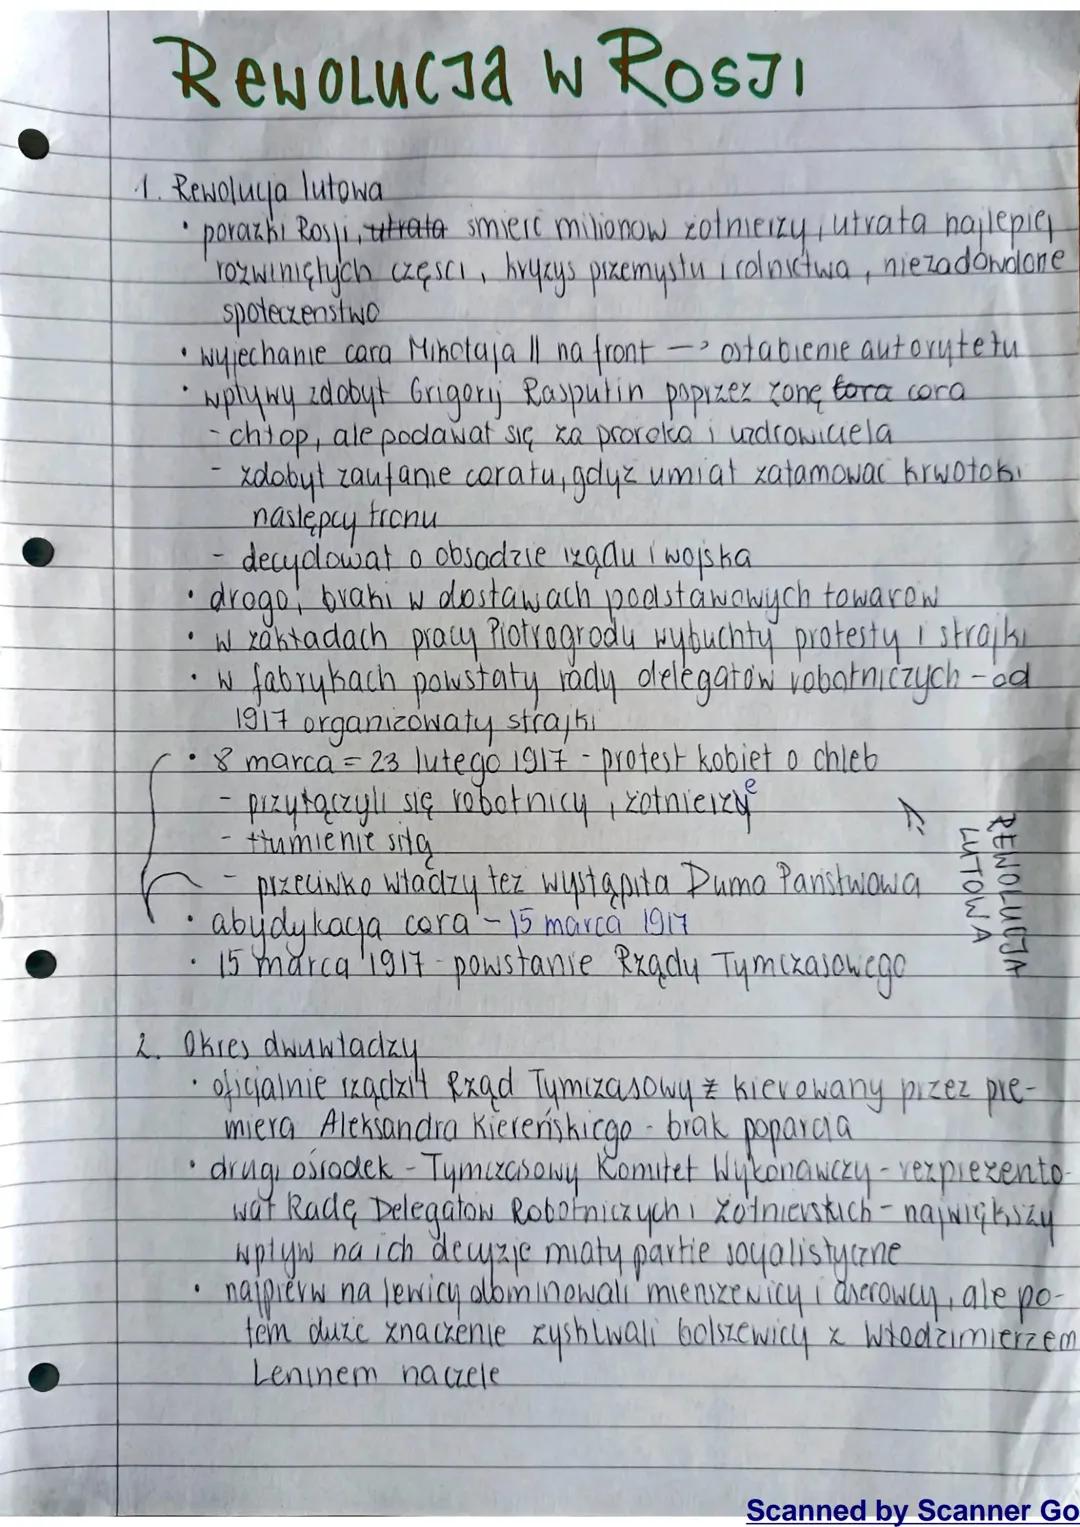 Rewolucja w Rosji
1. Rewolucja lutowa
• porażki Rosji, utrata śmierć milionow żołnierzy, utrata najlepiej
rozwiniętych części, kryzys przemysłu i rolnictwa, niezadowolone
społeczenstwo
• wyjechanie cara Mikołaja II na front -> osłabienie autorytetu
• wpływy zdobył Grigorij Rasputin poprzez żonę cara
- chłop, ale podawał się za proroka i uzdrowiciela
- zdobył zaufanie caratu, gdyż umiał zatamować krwotoki
następcy tronu
- decydował o obsadzie rządu i wojska
• drogo, braki w dostawach podstawowych towarow
• w zakładach pracy Piotrogrodu wybuchły protesty i strajki
• w fabrykach powstały rady delegatów robotniczych - od
1917 organizowały strajki
• 8 marca = 23 lutego 1917 - protest kobiet o chleb
- przyłączyli się robotnicy, żołnierze
- tłumienie siłą
- przeciwko władzy też wystąpiła Duma Państwowa
• abydykacja cara - 15 marca 1917
• 15 marca 1917 - powstanie Rządu Tymczasowego
REWOLUCJA
LUTOWA
2. Okres dwuwładzy
• oficjalnie rządził Rząd Tymczasowy kierowany przez pre-
miera Aleksandra Kiereńskiego - brak poparcia
• drugi ośrodek - Tymczasowy Komitet Wykonawczy - rezprezento-
wał Radę Delegatow Robotniczych i Żołnierskich - największy
wpływ na ich decyzje miały partie socjalistyczne
• najpierw na lewicy dominowali mienszewicy i eserowcy, ale po-
tem duże znaczenie zyskiwali bolszewicy z Włodzimierzem
Leninem na czele
Scanned by Scanner Go